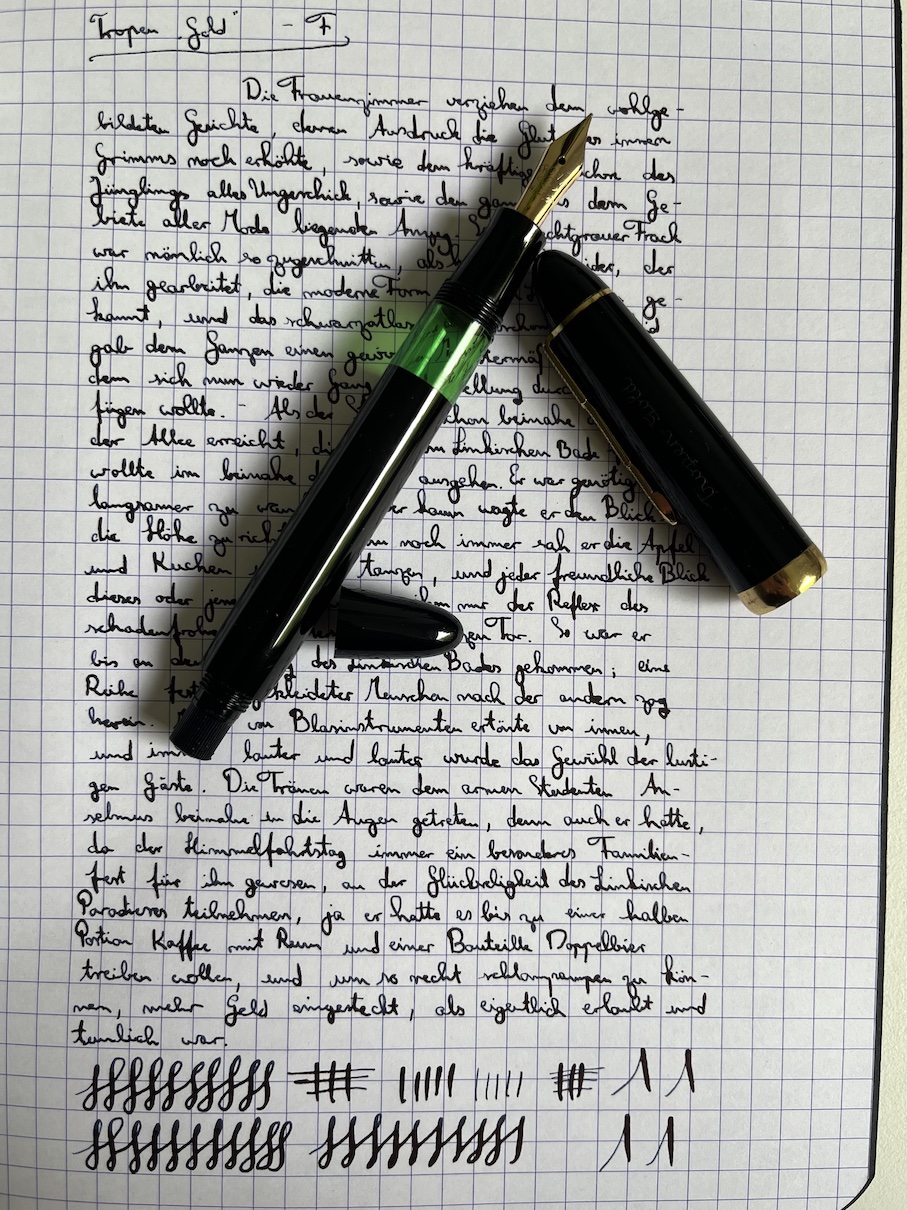 Tropen „Gold“ - F
Die Frauenzimmer verziehen dem wohlge-
bildeten Gesichte, dessen Ausdruck die Glut des innern
Grimms noch erhöhte, sowie dem kräftigen des
Jünglings alles Ungeschick, sowie den dem Ge-
biete aller Mode liegenden Anzug. Frack
war nämlich so zugeschnitten, als der
ihn gearbeitet, die moderne Form ge-
kannt, und das
gab dem Ganzen einen
dem sich nun wieder
fügen wollte. - Als der beinahe
der Allee erreicht, Linkischen Bade
wollte im beinahe ausgehen. Er war genötigt
langsamer zu dann wagte er den Blick
die Höhe zu noch immer sah er die Apfel
und Kuchen tanzen, und jeder freundliche Blick
dieses oder ihm nur der Reflex des
Tor. So war er
bis an des Linkischen Bades gekommen; eine
Reihe gekleideter Menschen nach der andern zog
herein. von Blasinstrumenten ertönte von innen,
und lauter und lauter wurde das Gewühl der lusti-
gen Gäste. Die Tränen waren dem armen Studenten An-
selmus beinahe in die Augen getreten, denn auch er hatte,
da der Himmelfahrtstag immer ein besonderes Familien-
fest für ihn gewesen, an der Glückseligkeit des Linkischen
Paradieses teilnehmen, ja er hatte es bis zu einer halben
Portion Kaffee mit Rum und einer Bouteille Doppelbier
treiben wollen, und um so recht schlampampen zu kön-
nen, mehr Geld eingesteckt, als eigentlich erlaubt und
tunlich war.